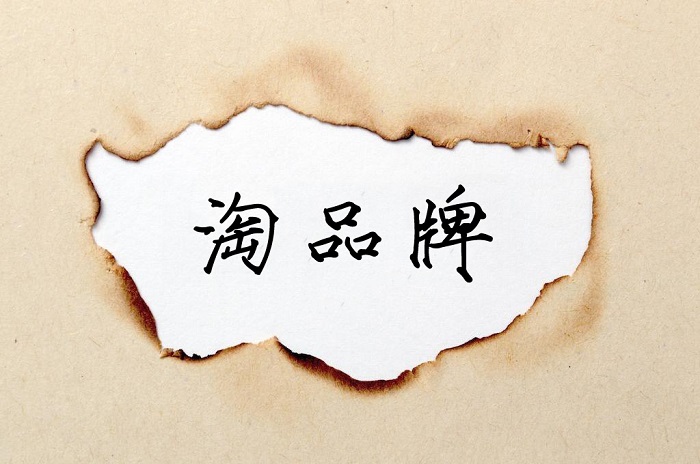 淘品牌